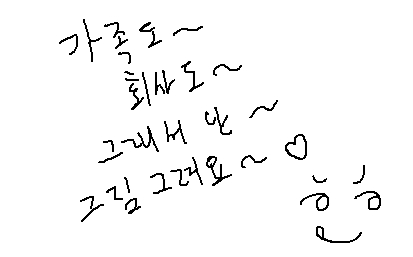 가족도~
회사도~
그래서 난~
그림 그려요~♡
흐흐